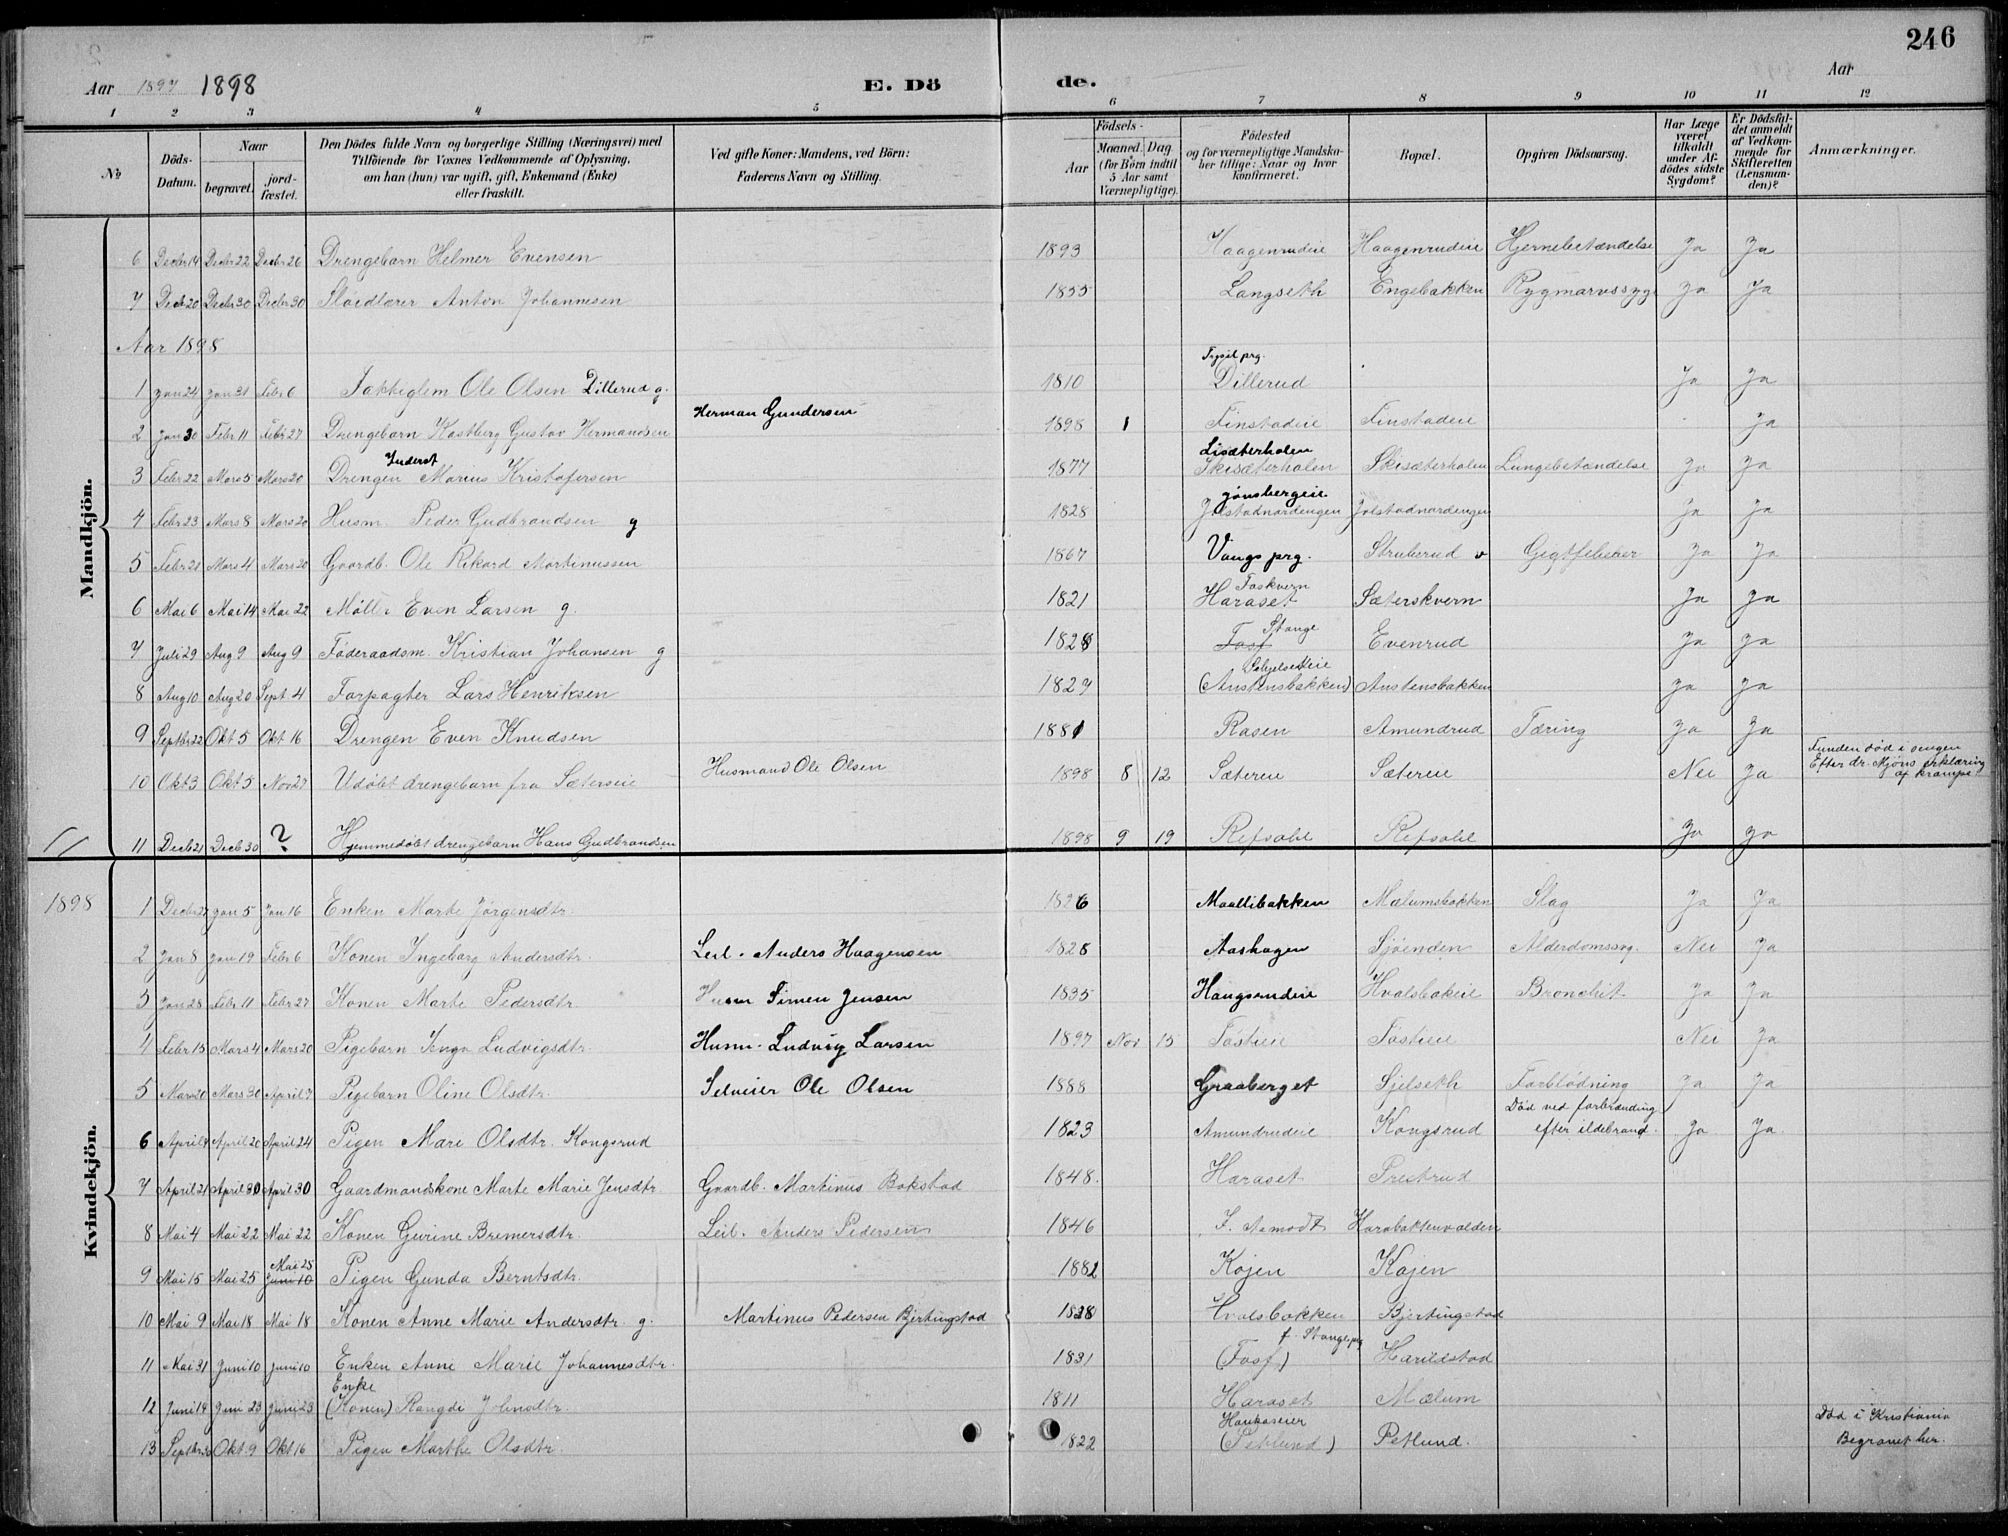 246
Aar 1897 1898 E. Döde. Aar
1 2 3 4 5 6 7 8 9 10 11 12
No
Döds-Datum.
Naar begravet. jordfæstet.
Den Dödes fulde Navn og borgerlige Stilling (Næringsvei) med
Tilföiende for Voxnes Vedkommende af Oplysning,
om han (hun) var ugift, gift, Enkemand (Enke)
eller fraskilt.
Ved gifte Koner: Mandens, ved Börn:
Faderens Navn og Stilling.
Födsels-
Aar
Maaned. Dag.
(for Börn indtil
5 Aar samt
Værnepligtige).
Födested
og for værnepligtige Mandskaber tillige: Naar og hvor
konfirmeret.
Bopæl.
Opgiven Dödsaarsag.
Har Læge
været
tilkaldt
under Afdödes sidste
Sygdom?
Er Dödsfaldet anmeldt
af Vedkommende for
Skifteretten
(Lensmanden)?
Anmærkninger.
Mandkjön.
6 Decbr 14 Decbr 22 Decbr 26 Drengebarn Helmer Evensen 1893 Haagenrudeie Haagenrudeie Hjernebetændelse Ja Ja
7 Decbr 20 Decbr 30 Decbr 30 Sløidlærer Anton Johannesen 1855 Langseth Engebakken Rygmarvssyge Ja Ja
Aar 1898
Trysil prg.
1 Jan 24 Jan 31 Febr 6 Ole Olsen Dillerud g. 1810 Dillerud Ja Ja
2 Jan 30 Febr 11 Febr 27 Drengebarn Kastberg Gustav Hermandsen Herman Gundersen 1898 1 Finstadeie Finstadeie Ja
Inderst Lisæterholen
3 Febr 22 Mars 5 Mars 20 Drengen Marius Kristofersen 1877 Skisæterholen Skisæterholen Lungebetændelse Ja Ja
Gønsbergeie
4 Febr 23 Mars 8 Mars 20 Husm. Peder Gudbrandsen g 1828 Jølstadnordengen Jølstadnordengen Ja Ja
5 Febr 21 Mars 4 Mars 20 Gaardb. Ole Rikard Martinussen 1867 Vangs prg. Struberud v Gigtfeber Ja Ja
Foskvern
6 Mai 6 Mai 14 Mai 22 Møller Even Larsen g. 1821 Haraset Sæterskvern Ja Ja
Stange
7 Juli 29 Aug 9 Aug 9 Føderaadsm. Kristian Johansen g 1828 Fosf Evenrud Ja Ja
8 Aug 10 Aug 20 Sept 4 Forpagter Lars Henriksen 1829 (Anstensbakken) Anstensbakken Ja Ja
9 Septbr 22 Okt 5 Okt 16 Drengen Even Knudsen 1881 Rasen Amundrud Tæring Ja Ja
10 Okt 3 Okt 5 Nov 27 Udøbt drengebarn fra Sæterseie Husmand Ole Olsen 1898 8 12 Sætereie Sætereie Nei Ja Funden død i sengen
Efter dr. Mjøns erklæring
af krampe.
11 Decb 21 Decb 30 ? Hjemmedøbt drengebarn Hans Gudbrandsen 1898 9 19 Refsahl Refsahl Ja Ja
Kvindekjön.
1898
1 Decbr 27 Jan 5 Jan 16 Enken Marte Jørgensdtr. 1826 Maaltibakken Mælumsbakken Slag Ja Ja
2 Jan 8 Jan 19 Febr 6 Konen Ingeborg Andersdtr. Leil. Anders Haagensen 1828 Aashagen Sjøenden Alderdomssvg. Nei Ja
3 Jan 28 Febr 11 Febr 27 Konen Marte Pedersdtr. Husm Simen Jensen 1835 Haugsrudeie Hvalsbakeie Bronchit Ja Ja
4 Febr 15 Mars 4 Mars 20 Pigebarn Inga Ludvigsdtr. Husm. Ludvig Larsen 1897 Nov 15 Fostieie Fostieie Nei Ja
5 Mars 20 Mars 30 April 7 Pigebarn Oline Olsdtr. Selveier Ole Olsen 1888 Graaberget Sjelseth Forblødning Ja Ja
6 April 9 April 20 April 24 Pigen Mari Olsdtr. Kongsrud 1823 Amundrudeie Kongsrud Død ved forbrænding
efter ildebrand. Ja Ja
7 April 21 April 30 April 30 Gaardmandskone Marte Marie Jensdtr. Gaardb. Martinus Bakstad 1848. Haraset Prestrud
8 Mai 4 Mai 22 Mai 22 Konen Gurine Bremersdtr. Leil. Anders Pedersen 1846 F. Aamodt Harabakkenvolden
Mai 25
9 Mai 15 Mai 25 Juni 10 Pigen Gunda Berntsdtr. 1882 Køjen Køjen
10 Mai 9 Mai 18 Mai 18 Konen Anne Marie Andersdtr. g. Martinus Pedersen Bjertingstad 1838 Hvalsbakken Bjertingstad
f. Stange prg
11 Mai 31 Juni 10 Juni 10 Enken Anne Marie Johannesdtr. 1831 (Fosf) Harildstad
Enke
12 Juni 14 Juni 23 Juni 23 (Konen) Rangdi Johnsdtr. 1811 Haraset Mælum
13 Septbr Okt 9 Okt 16 Pigen Marthe Olsdtr. 1822 (Petlund) Petlund. Død i Kristiania
Begravet her.